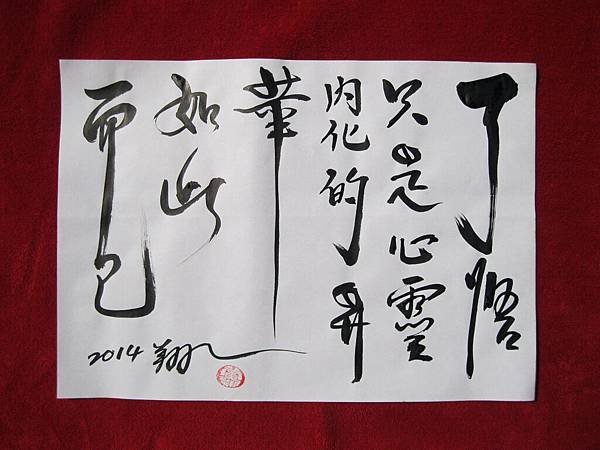 了悟
只是心靈
內化的昇
華
如此
而已
2014 翔